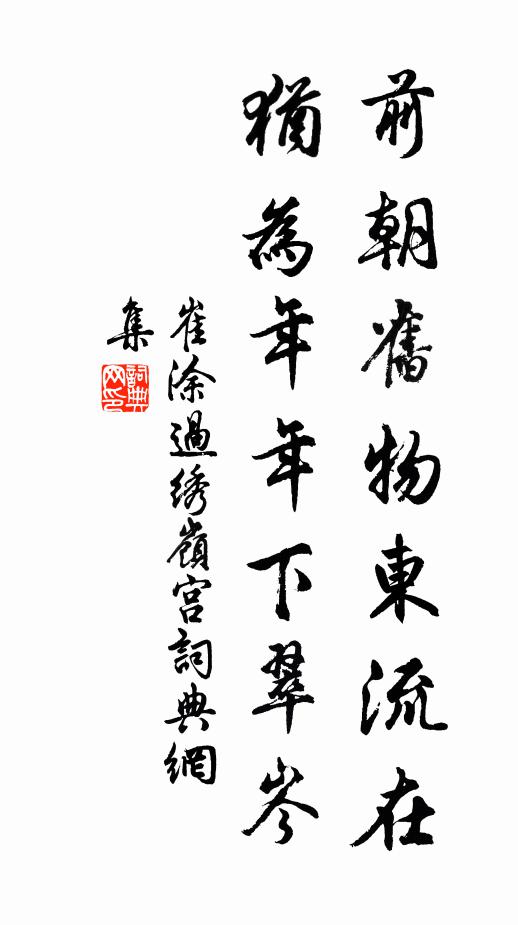 前朝舊物東流在
猶為年年下翠岑
崔涂過綉嶺宮詞典網
集
詞典网印